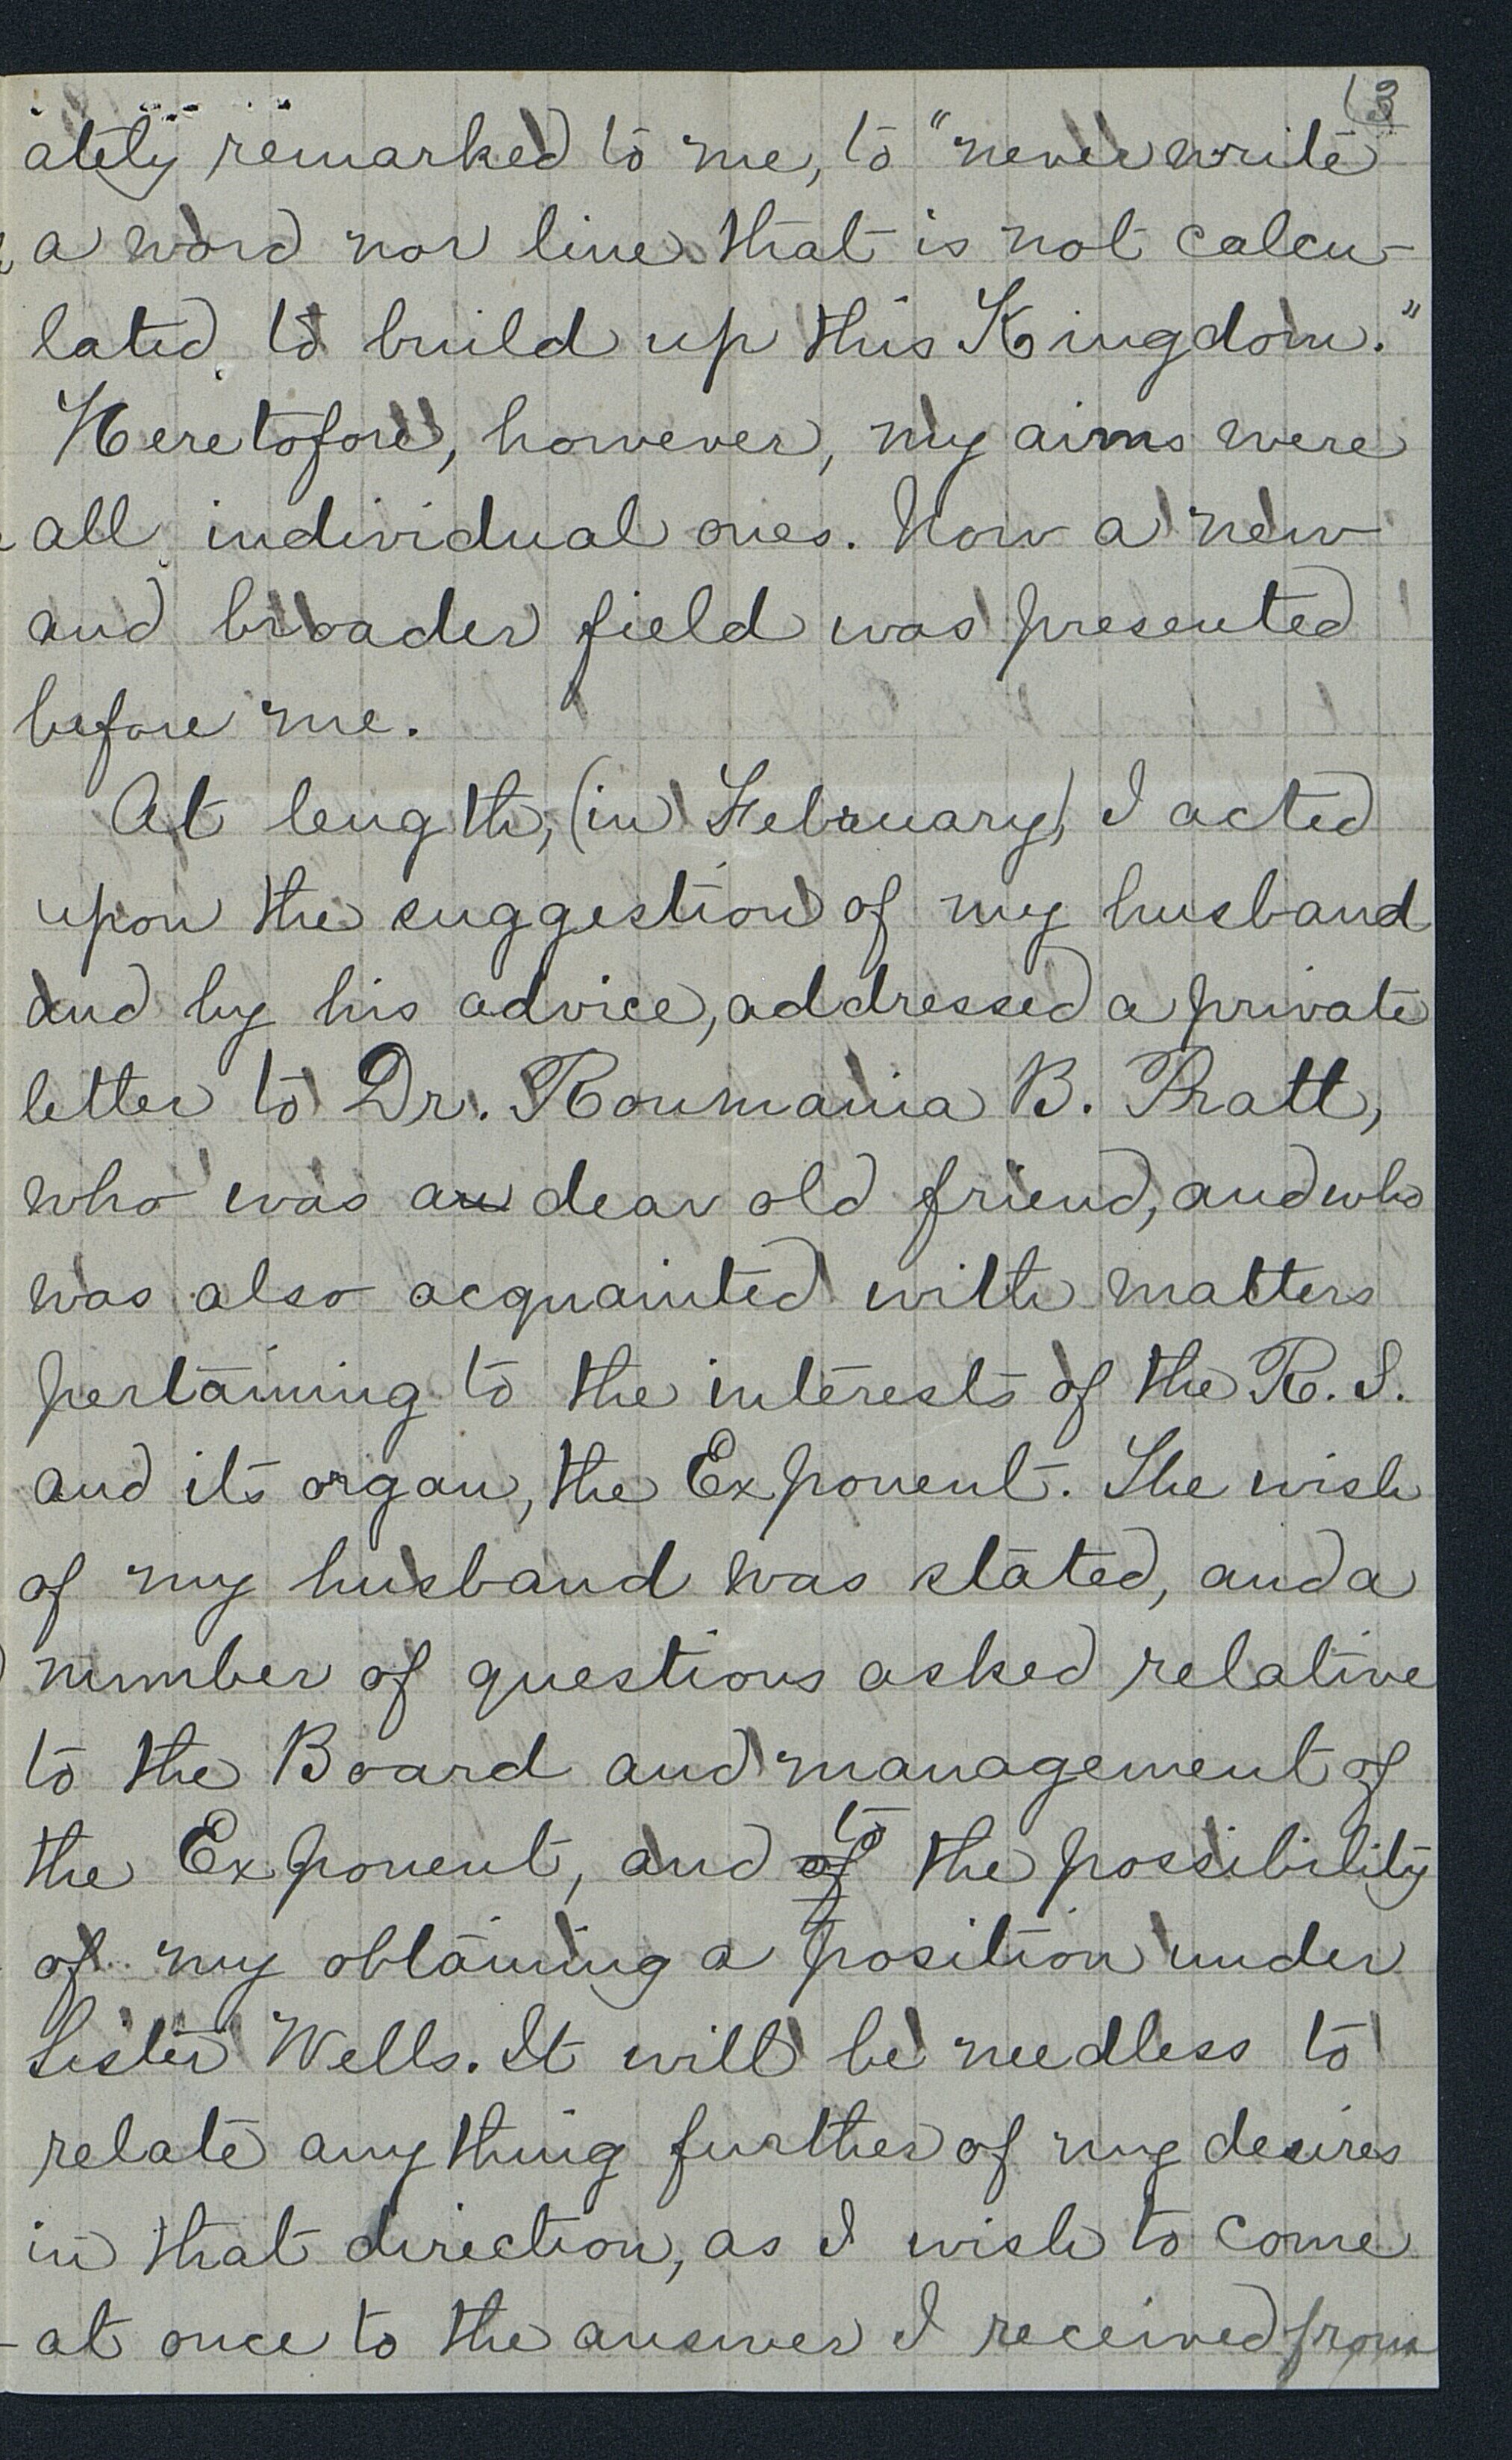 (3
ately remarked to me, to "never write
a word nor line that is not calcu-
lated to build up this Kingdom."
Heretofore, however, my aims were
all individual ones. Now a new
and broader field was presented
before me.
At length, (in February) I acted
upon the suggestion of my husband
and by his advice, addressed a private
letter to Dr. Roumania B. Pratt,
who was an dear old friend, and who
was also acquainted with matters
pertaining to the interests of the R. S.
and its organ, the Exponent. The wish
of my husband was stated, and a
number of questions asked relative
to the Board and management of
to
the Exponent, and of the possibility
of my obtaining a position under
Sister Wells. It will be needless to
relate anything further of my desires
in that direction, as I wish to come
at once to the answer I received from